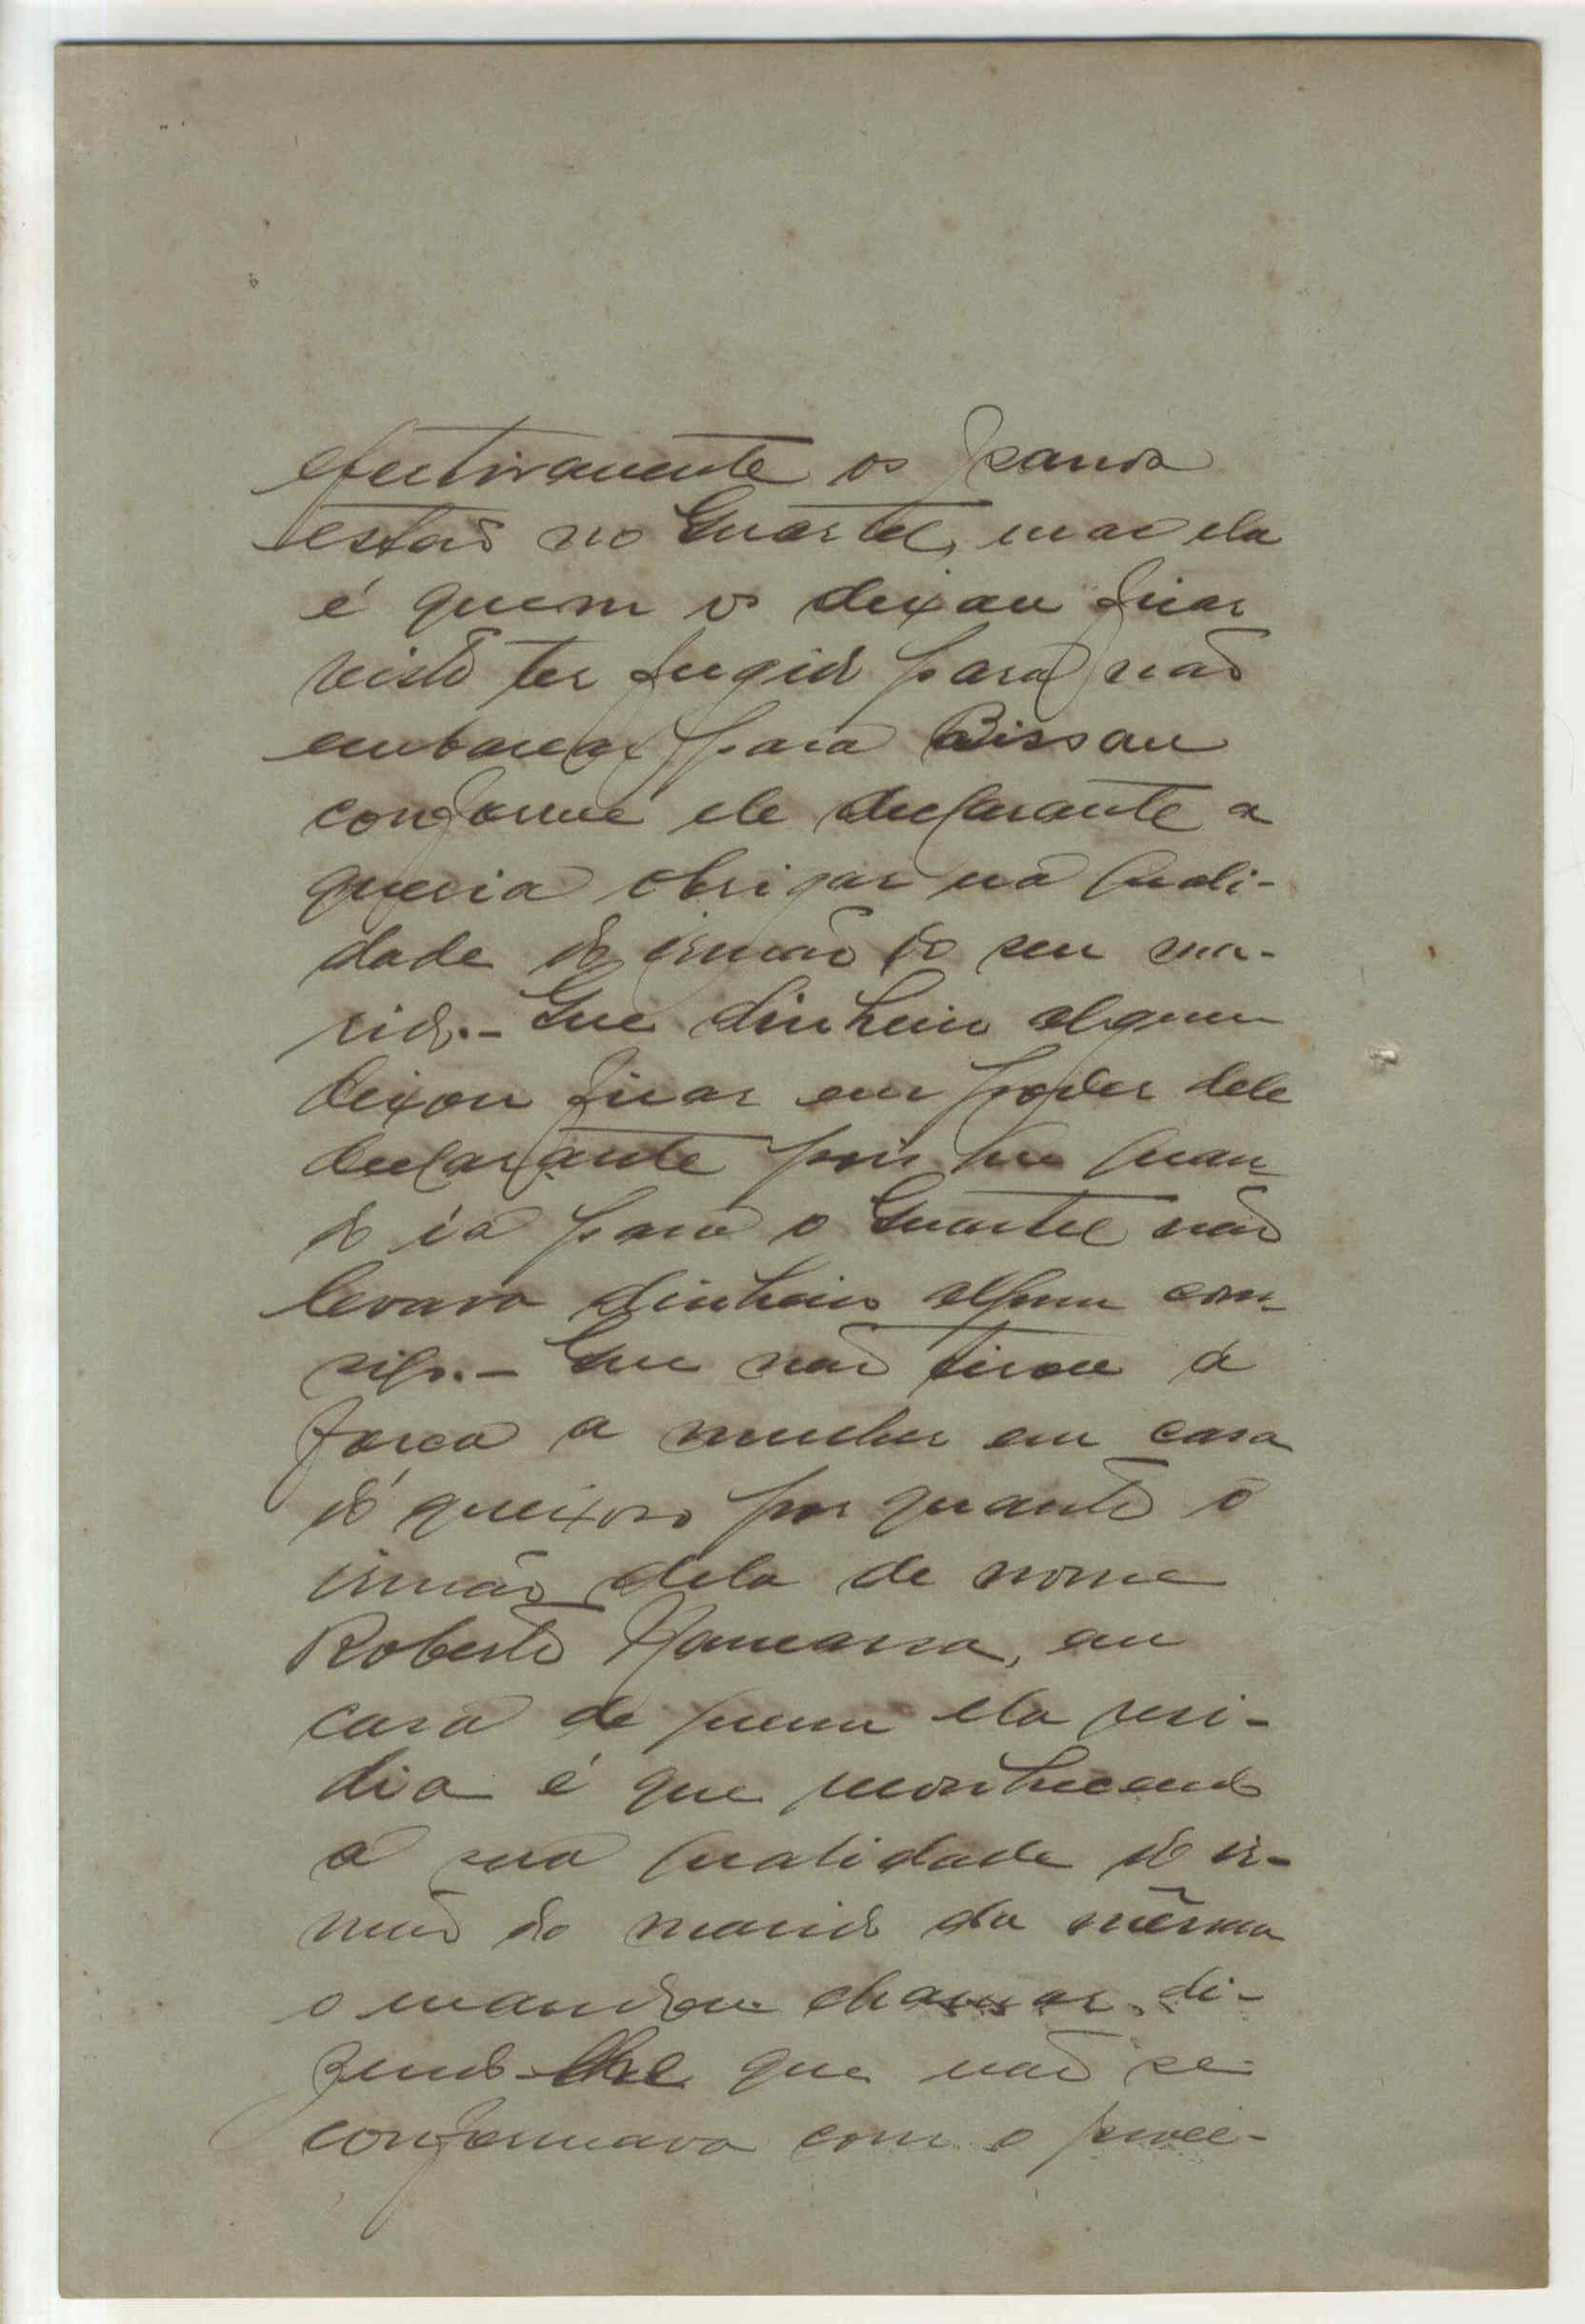 efectivamente os panos
estão no Quartel, mas ela
é quem os deixou ficar
visto ter fugido para não
embarcar para Bissau
conforme ele declarante a
queria obrigar na quali-
dade de irmão do seu ma-
rido.- Que dinheiro algum
deixou ficar em poder dele
declarante pois que quan-
do ia para o Quartel não
levava dinheiro algum com-
sigo.- Que não tirou á
força a mulher em casa
do queixoso por quanto o
irmão dela de nome
Roberto, em
casa de quem ela resi-
dia é que reconhecendo
a sua qualidade de ir-
mão do marido da mêsma
o mandou chamar, di-
zendo-lhe que não se
conformava com o proce-